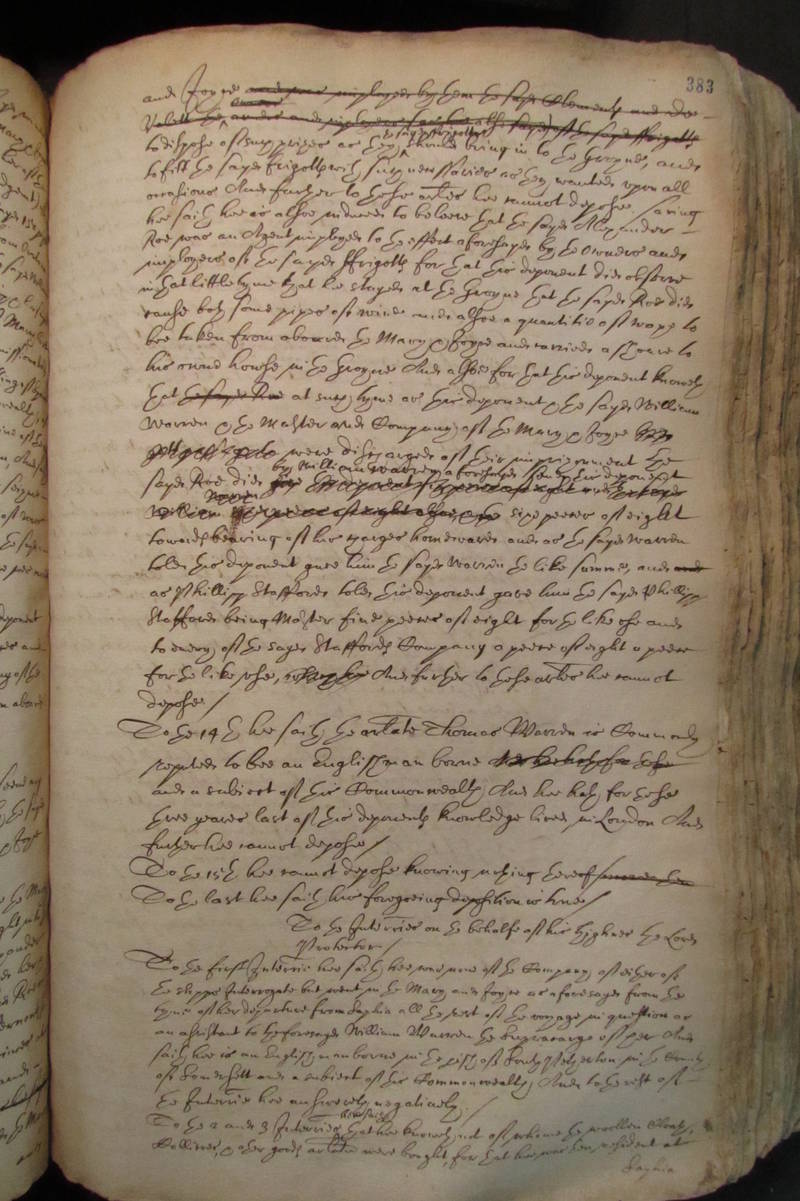 383
and Joyce and was imployed by them the sayd Clements and
Valett the owners and imployers of the sayd ffrigotts
to dispose of such prizes as they the sayd ffrigotts should bring in to the Groyne, and
to fitt the sayd frigotts with such necessaries as they wanted upon all
occasions And further to these articles hee cannot depose, saving
hee saith hee is alsoe induced to beleeve that the sayd Alexander
Roe was an Agent imployed to the effect aforesayd by the owners and
imployers of the sayd ffrigotts for that this deponent did observe
in that little tyme that hee stayed at the Groyne that the sayd Roe did
cause both some pipes of wine and alsoe a quantitie of rope to
bee taken from aboard the Mary & Joyce and carried ashoare to
his owne howse in the Groyne And alsoe for that this deponent knoweth
that the sayd Roe at such tyme as this deponent & the sayd William
Warren & the Master and Company of the Mary & Joyce
were discharged of their imprisonment the
sayd Roe did by William Warren aforesayd send this deponent
William Warren sixe peeces of eight
towards bearing of his charges homewards and as the sayd Warren
told this deponent gave him the sayd Warren the like summe, and
as Phillipp Stafford told this deponent gave him the sayd Phillipp
Stafford being Master five peeces of eight for the like use and
to every of the sayd Staffords Company a peece of eight a peece
for the like use, And further to these articles hee cannot
depose /
To the 14th hee saith the articulate Thomas Warren is Commonly
reputed to bee an Englishman borne
and a subiect of this Commonwealth And hee hath for these
three yeares last of this deponents knowledge lived in London And
further hee cannot depose /
To the 15th hee cannot depose knowing nothing thereof
To the last hee saith his foregoeing deposition is true /
To the Interries on the behalfe of his Highnes the Lord
Protector /
To the first Interrie hee saith hee was none of the Company of either of
the shipps Interrogate but went in the Mary and Joyce as aforesayd from the
tyme of her departure from Saphia all the rest of the voyage in question as
an assistant to the foresayd William Warren the Supracargo of her And
saith hee is an Englishman borne in the parish of South Petherton in the County
of Somersett and a subiect of this Commonwealth, And to the rest of
the Interrie hee answereth negatively /
To the 2 and 3 Interries hee saith that hee knoweth not of whome the woollen Cloath,
Callicoes, & other goods articulate were bought, for that hee was then resident at
Saphia